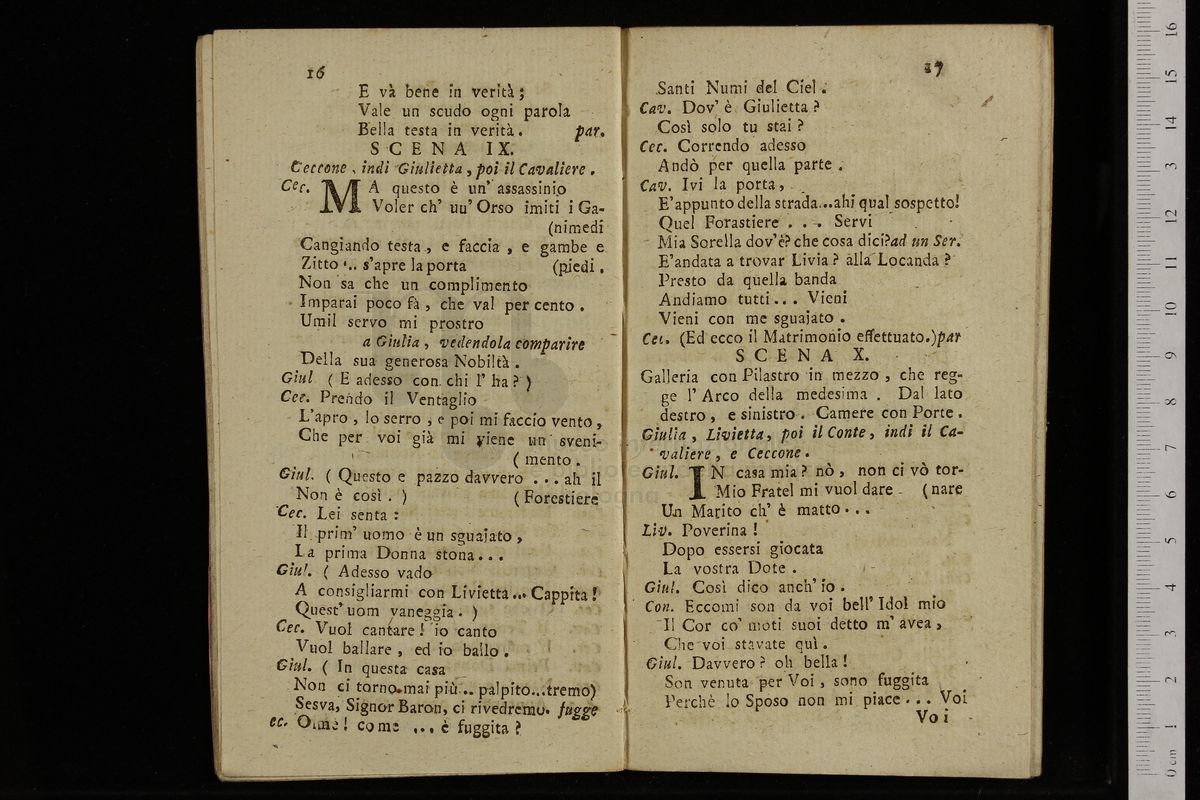 16
E và bene in verità;
Vale un scudo ogni parola
Bella testa in verità. par.
SCENA IX.
Ceccone, indi Giulietta, poi il Cavaliere.
Cec. MA questo è un' assassinio
Voler ch' uu' Orso imiti i Ga-
(nimedi
Cangiando testa, e faccia, e gambe e
Zitto... s'apre la porta (piedi.
Non sa che un complimento
Imparai poco fà, che val per cento.
Umil servo mi prostro
a Giulia, vedendola comparire
Della sua generosa Nobiltà.
Giul (E adesso con chi l' ha?)
Cec. Prendo il Ventaglio
L'apro, lo serro, e poi mi faccio vento,
Che per voi già mi viene un sveni-
(mento.
Giul. (Questo e pazzo davvero... ah il
Non è così.) (Forestiere
Cec. Lei senta:
Il prim' uomo è un sguajato,
La prima Donna stona...
Giul. (Adesso vado
A consigliarmi con Livietta... Cappita!
Quest' uom vaneggia.)
Cec. Vuol cantare! io canto
Vuol ballare, ed io ballo.
Giul. (In questa casa
Non ci torno mai più... palpito...tremo)
Sesva, Signor Baron, ci rivedremo. fugge
ec. Oimè! come ... è fuggita?
17
Santi Numi del Ciel.
Cav. Dov' è Giulietta?
Così solo tu stai?
Cec. Correndo adesso
Andò per quella parte.
Cav. Ivi la porta,
E'appunto della strada...ahi qual sospetto!
Quel Forastiere ... Servi
Mia Sorella dov'è? che cosa dici? ad un Ser.
E'andata a trovar Livia? alla Locanda?
Presto da quella banda
Andiamo tutti... Vieni
Vieni con me sguajato.
Cec. (Ed ecco il Matrimonio effettuato.)par
SCENA X.
Galleria con Pilastro in mezzo, che reg-
ge l' Arco della medesima. Dal lato
destro, e sinistro. Camere con Porte.
Giulia, Livietta, poi il Conte, indi il Ca-
valiere, e Ceccone.
Giul. IN casa mia? nò, non ci vò tor-
Mio Fratel mi vuol dare (nare
Un Marito ch' è matto...
Liv. Poverina!
Dopo essersi giocata
La vostra Dote.
Giul. Così dico anch' io.
Con. Eccomi son da voi bell' Idol mio
Il Cor co' moti suoi detto m' avea,
Che voi stavate quì.
Giul. Davvero? oh bella!
Son venuta per Voi, sono fuggita
Perchè lo Sposo non mi piace... Voi
Voi